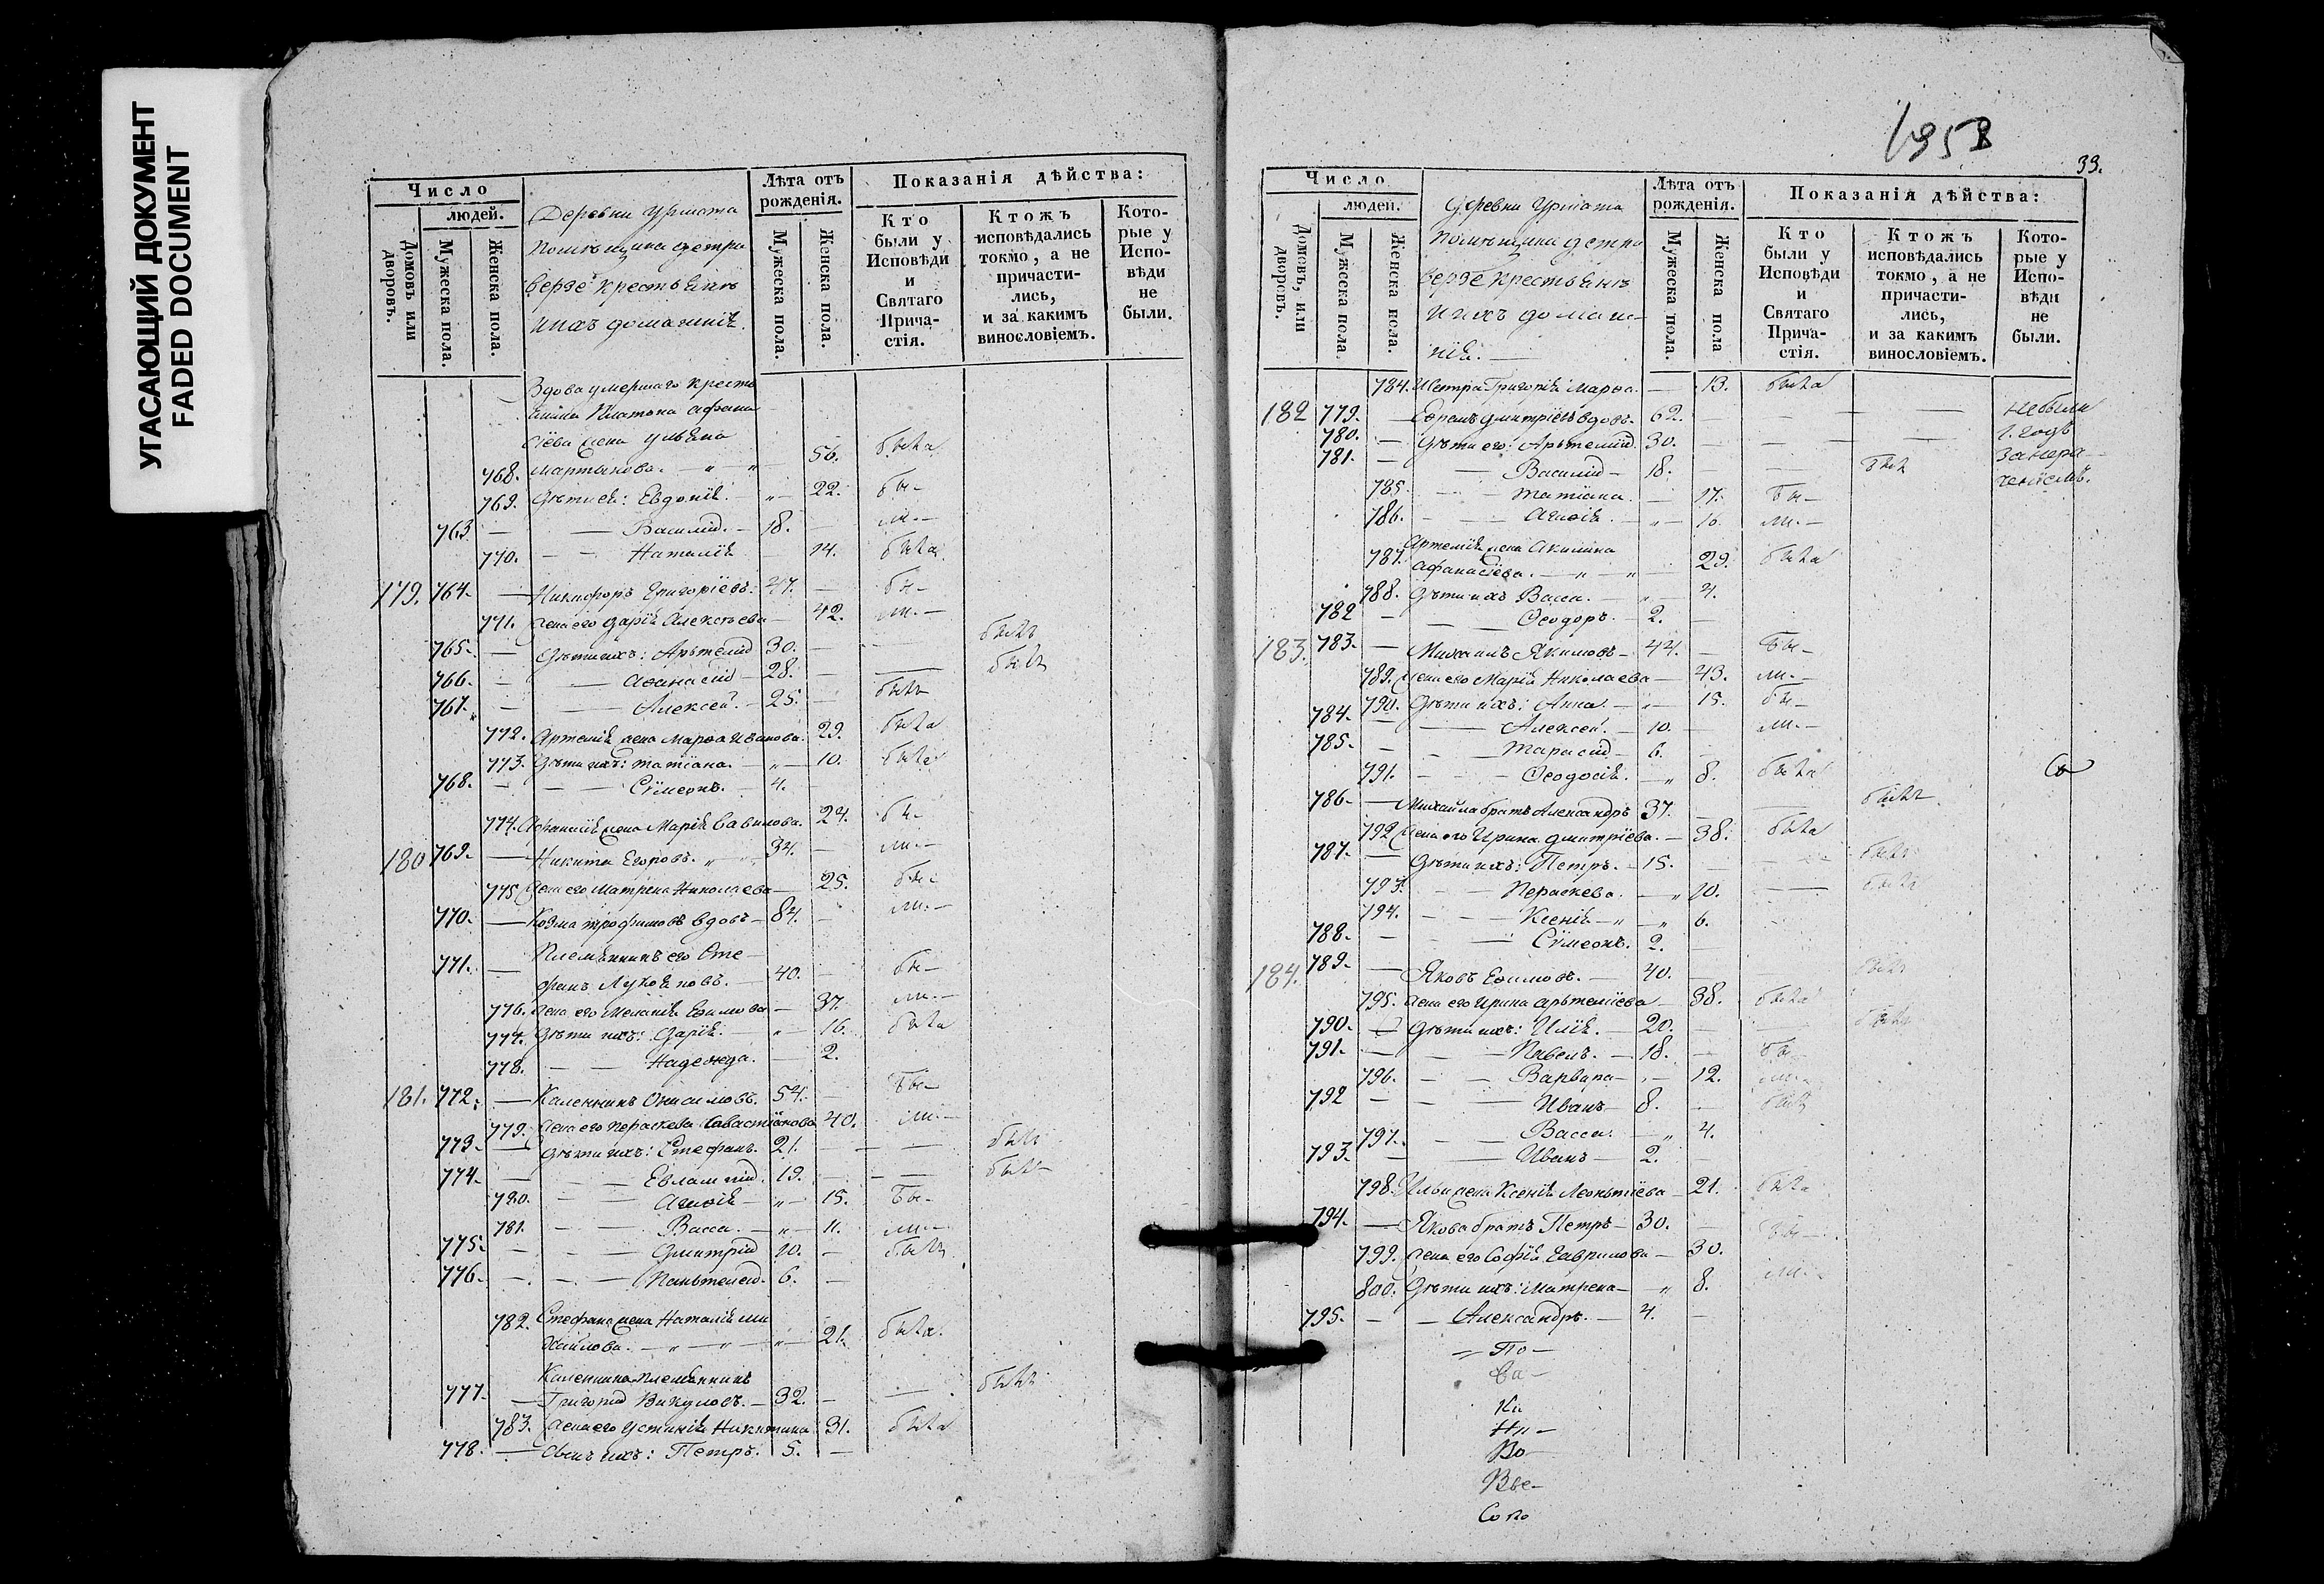 УГАСАЮЩИЙ ДОКУМЕНТ
FADED DOCUMENT
Число
людей.
Домовъ или дворовъ.
Мужеска пола.
Женска пола.
Деревни Урмата
Помѣщика
крестьянъ
ихъ домашнiя.
Лѣта отъ рожденiя.
Мужеска пола.
Женска пола.
Показанiя дѣйства:
Кто были у Исповѣди и Святаго Прича-стiя.
Ктожъ исповѣдались токмо, а не причасти-лись, и за какимъ винословiемъ.
Кото-рые у Испо-вѣди не были.
Вдова умершаго кресть
янина Платона Афана
сiева жена Ульяна
768. Мартынова. 56. была
769. Дѣти ея: Евдокiя 22. бы-
763. Василiй. 18. ли.
770. Наталiя 14. была
179. 764. Никифоръ Григорiевъ. 47. бы-
771. Жена его Дарiя Алексѣева 42. ли.
765. Дѣти ихъ: Артемiй 30. былъ
766. Афанасiй 28. былъ
767. Алексей. 25. былъ
772. Артемiя жена Марфа Иванова. 29. была
773. Дѣти ихъ: Татiана. 10. была
768. Сѵмеонъ. 4.
774. Афанасiя жена Марiя Савинова. 24. бы-
180 769. Никита Егоровъ. 34. ли.
775. Жена его Матрена Николаева 25. бы-
770. Козма Трофимовъ вдовъ 84. ли.
Племянникъ его Сте
771. фанъ Лукояновъ. 40. бы-
776. Жена его Меланiя Ефимова 37. ли.
777. Дѣти ихъ: Дарiя. 16. была
778. Надежда. 2.
181. 772. Каленникъ Онисимовъ. 54. бы-
779. Жена его Пераскева Савастiанова 40. ли.
773. Дѣти ихъ: Стефанъ. 21. былъ
774. Евлампiй. 19. былъ
780. Агафiя 15. бы-
781. Васса. 11. ли.
775. Дмитрiй 10. былъ
776. Пантелей. 6.
782. Стефана жена Наталiя Ми
хайлова. 21. была.
Каленника племянникъ
777. Григорiй Викуловъ. 32. былъ
783. Жена его Устинiя Никитина 31. была
778. Сынъ ихъ: Петръ. 5.
1953
33.
Число
людей.
Домовъ, или дворовъ.
Мужеска пола
Женска пола.
Деревни Урмата
Помѣщика
крестьянъ
и ихъ домаш-
нiя.
Лѣта отъ рожденiя.
Мужеска пола.
Женска пола
Показанiя дѣйства:
Кто были у Исповѣди и Святаго Прича-стiя.
Ктожъ исповѣдались токмо, а не причасти-лись, и за какимъ винословiемъ.
Кото-рые у Испо-вѣди не были.
784. Сестра Григорiя Марфа. 13. была
182 779. Ефремъ Дмитрiевъ вдовъ. 62. не были
780. Дѣти его: Артемiй. 30. 1. годъ
781. Василiй 18. былъ за нера-
785. Татiана. 17. бы- ченiемъ.
786. Агафiя. 16. ли.
Артемiя жена Акилина
787. Афанасiева. 29. была
788. Дѣти ихъ Васса. 4.
782 Ѳеодоръ. 2.
183. 783. Михаилъ Якимовъ 44. бы-
789. Жена его Марiя Николаева 43. ли.
790. Дѣти ихъ: Анна. 15. бы-
784. Алексей. 10. ли.
785. Тарасiй 6.
791. Ѳеодосiя. 8. была
786. Михайла братъ Александръ 37. былъ
792 Жена его Ирина Дмитрiева. 38. была
787. Дѣти ихъ: Петръ. 15. былъ
793. Пераскева. 10. была
794. Ксенiя 6.
788. Сѵмеонъ. 2.
184. 789. Яковъ Ефимовъ. 40. былъ
795. Жена его Ирина Артемiева 38. была
790. Дѣти ихъ: Илiя. 20. былъ
791. Павелъ. 18. бы-
796. Варвара 12. ли.
792 Иванъ 8. былъ
797. Васса. 4.
793. Иванъ 2.
798. Ильи жена Ксенiя Леонтiева 21. была
794. Якова братъ Петръ 30. бы-
799. Жена его Софiя Гаврилова 30. ли.
800. Дѣти ихъ: Матрена 8.
795. Александръ. 4.
По
Ва
Ки
Ни
Во
Вве
Соло